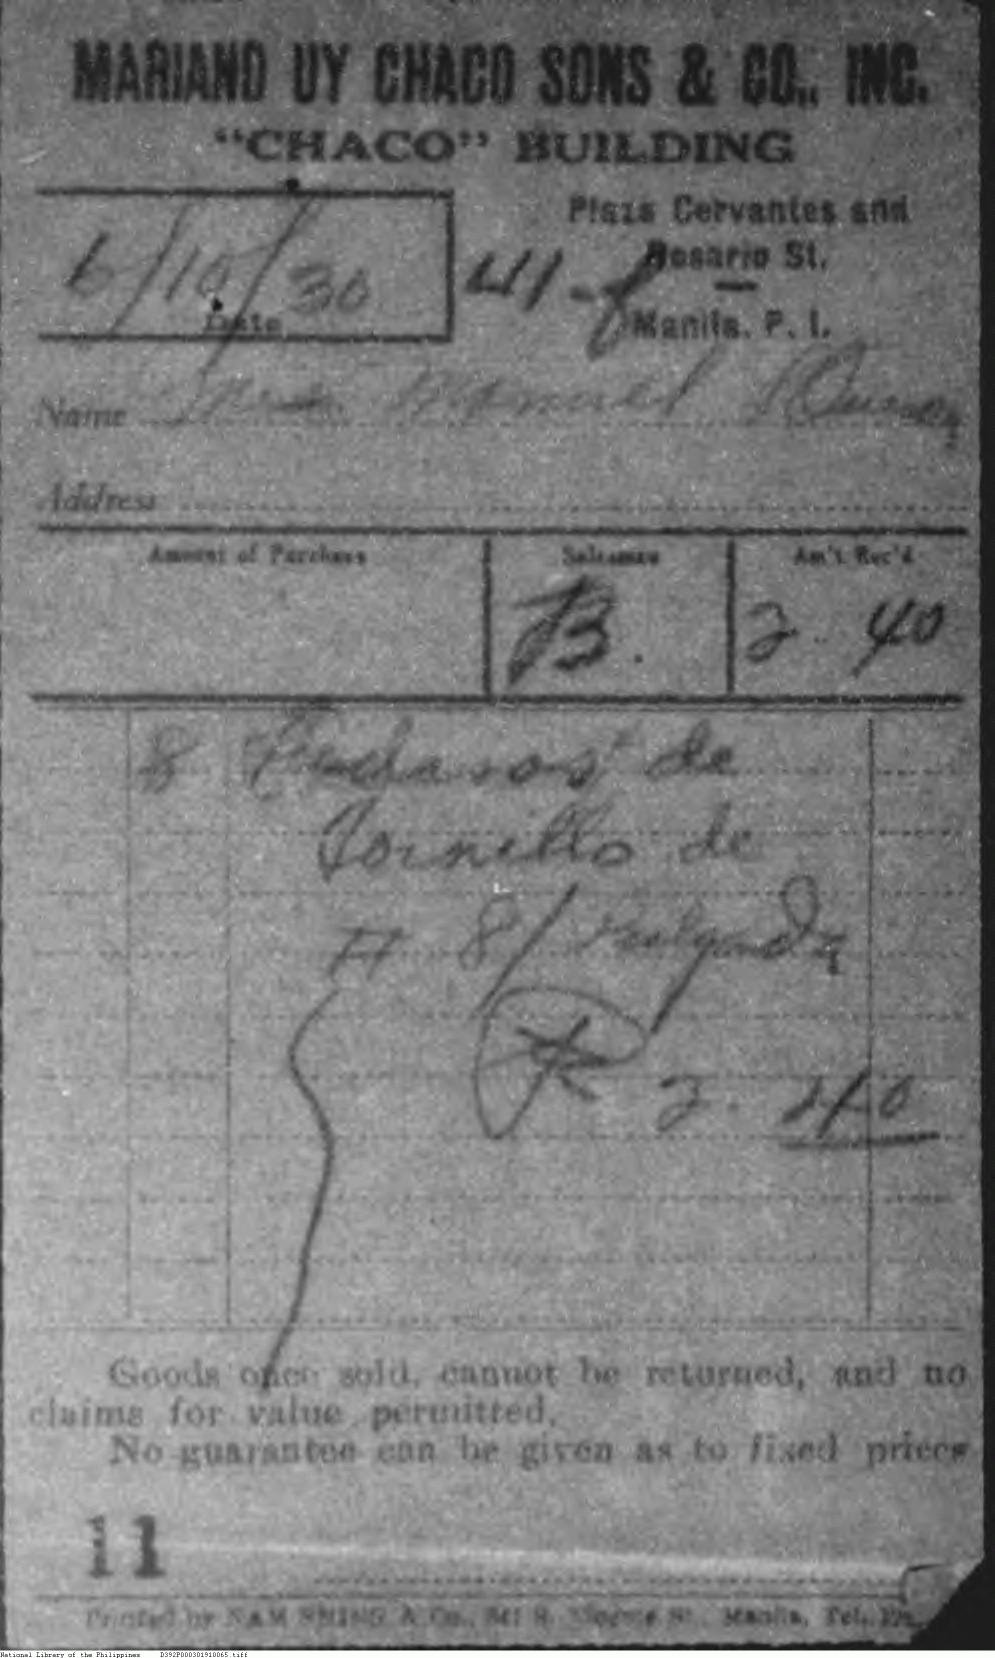 MARIANO UY CHACO SONS & CO., INC.
"CHACO" BUILDING
Plaza Cervantes and
Rosario St.
Manila. P. I.
6/10/30
Date
41-f
Name Mrs. Manuel
Address
Amount of Purchase Salesman Am't Rec'd
B. 2.40
8 de
Tornillo de
# 8/ Pulgada
2.40
Goods once sold, cannot be returned, and no
claims for value permitted.
No guarantee can be given as to fixed prices
11
Printed by NAM SHING & Co., St., Manila, Tel.
National Library of the Philippines D392P000301910065.tiff